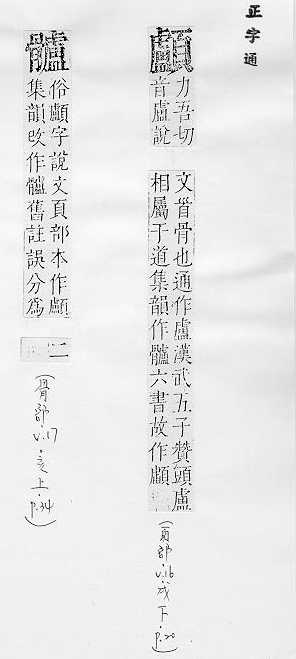 正字通
顱
力吾切
音盧說
文𩠐骨也通作盧漢武五子贊頭盧
相屬于道集韻作髗六書故作顱
(頁部 v.16 戌下 p.20)
髗
俗顱字說文頁部本作顱
集韻改作髗舊註誤分爲
二
(骨部 v.17 亥上 p.34)